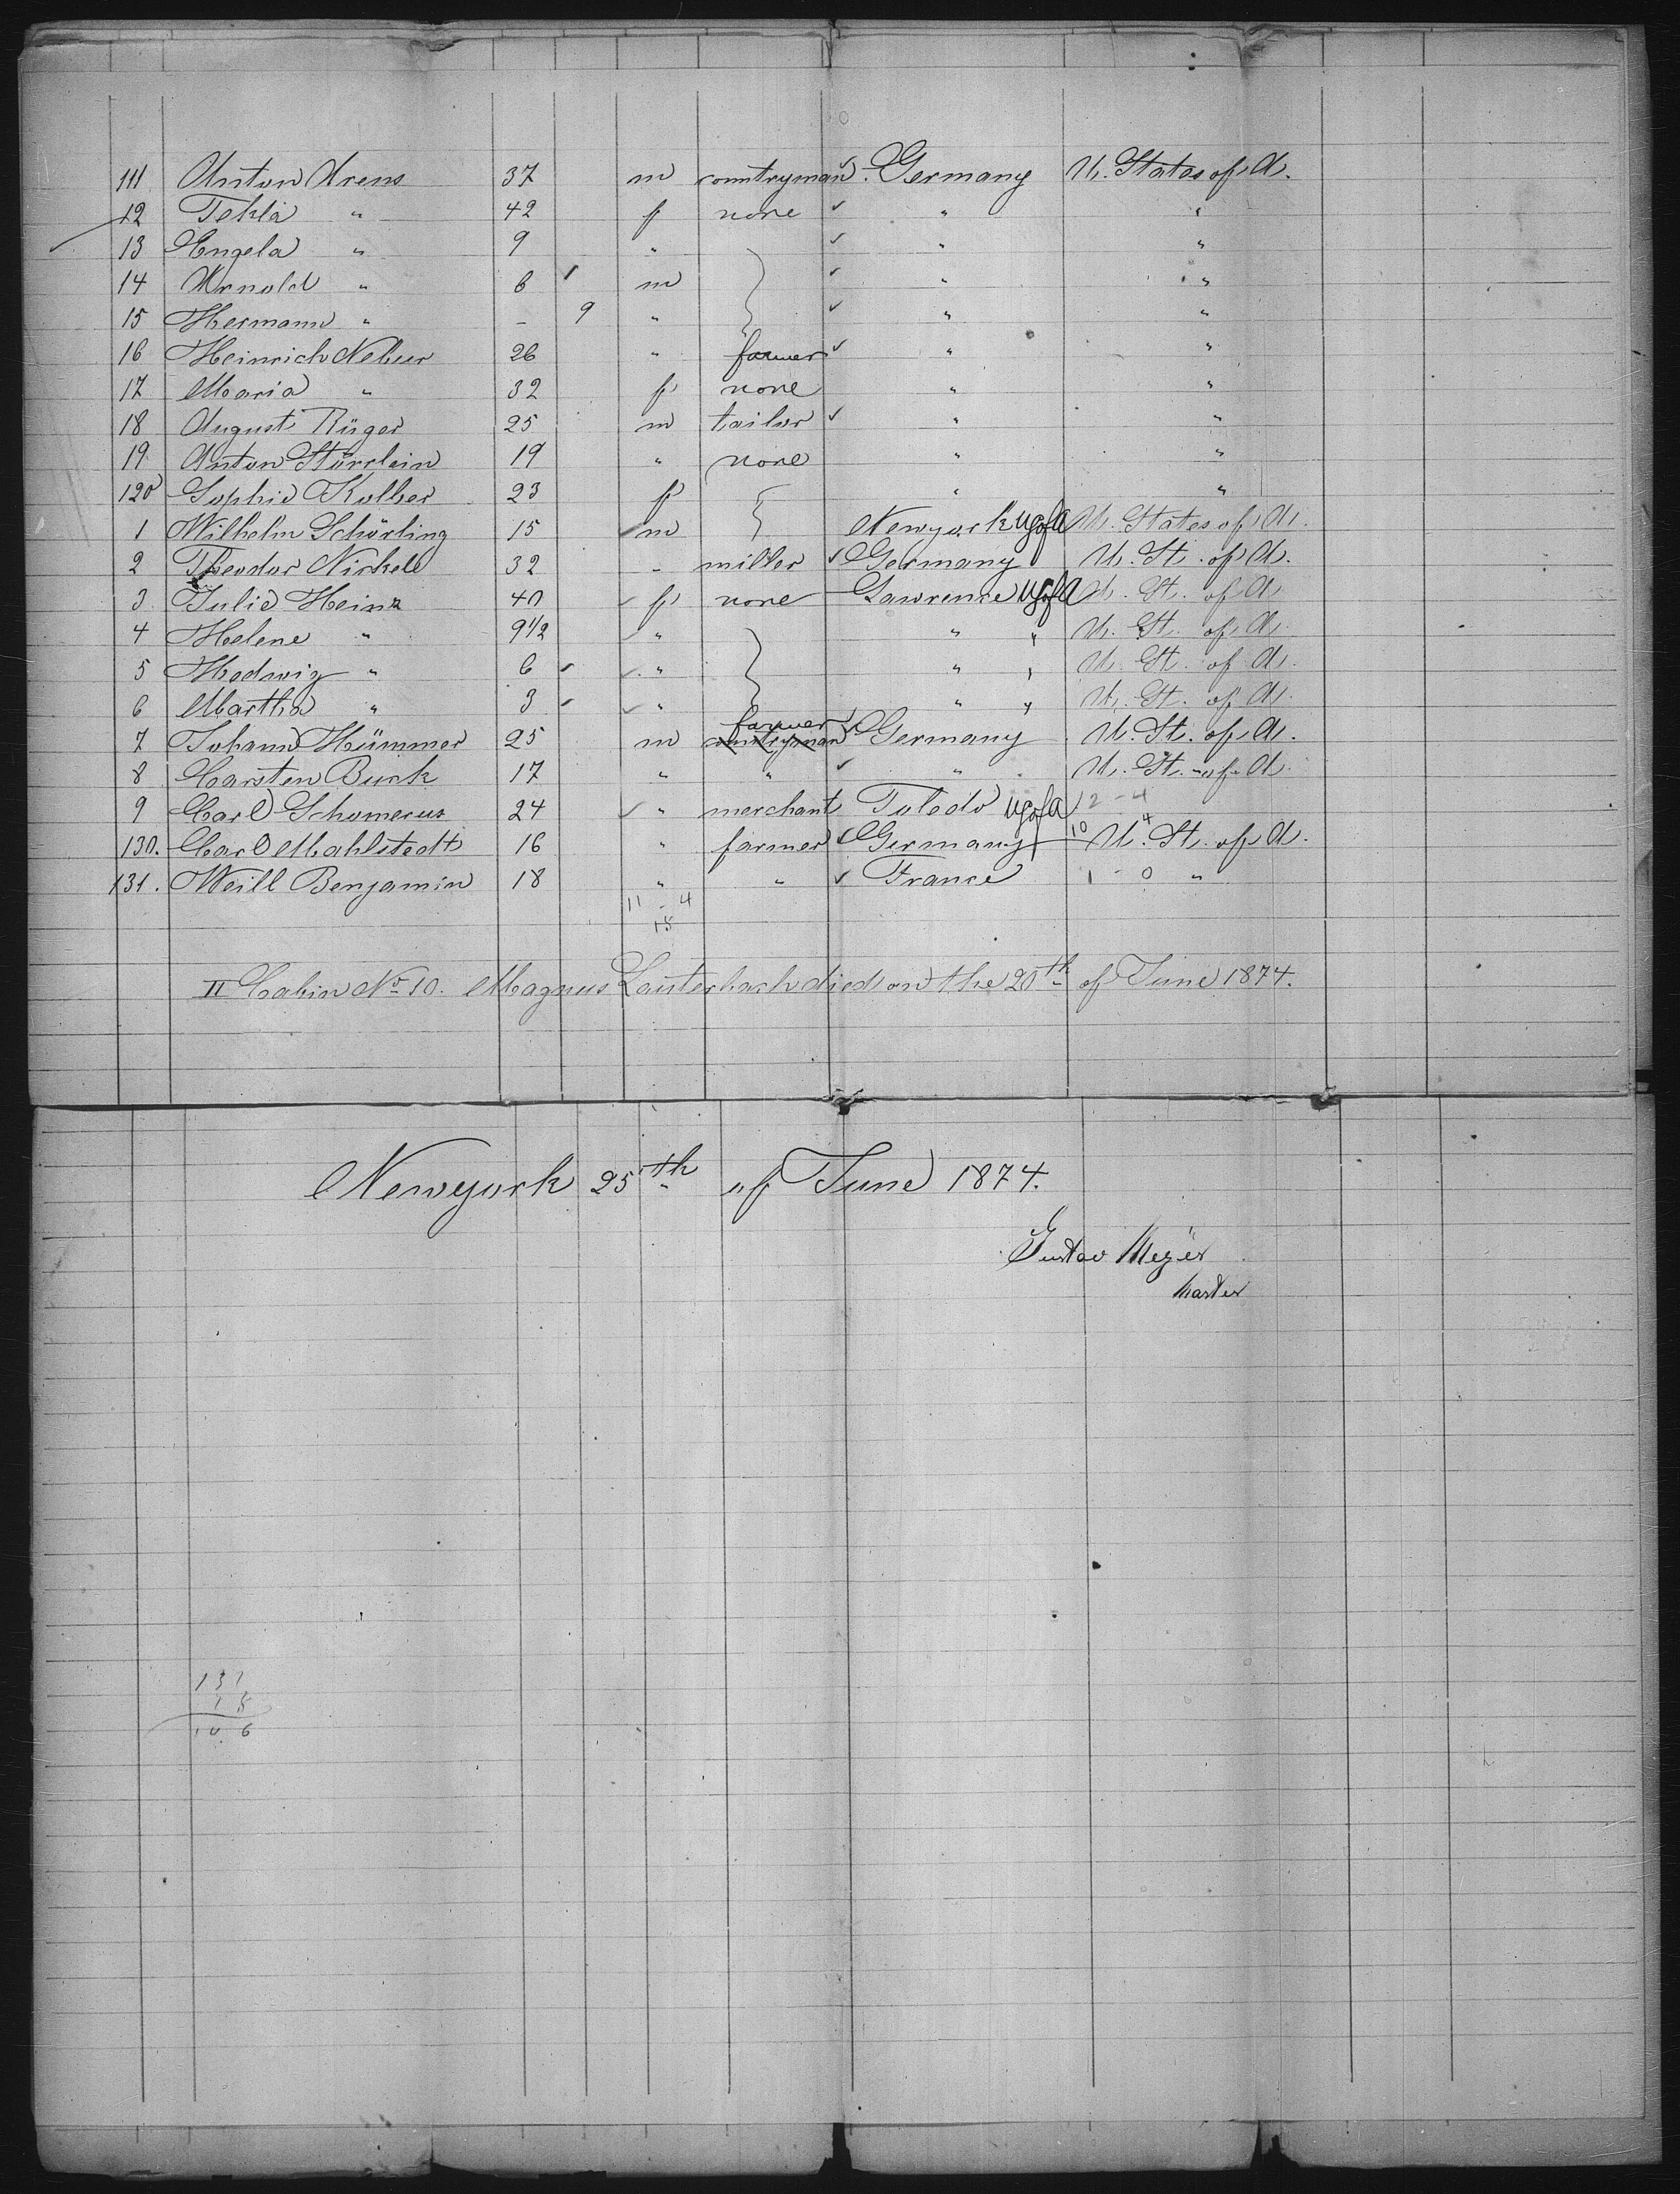 111 Anton Arens 37 m countryman Germany U. States of A.
12 Tekla " 42 f none " "
13 Engela " 9 " " "
14 Arnold " 6 m " "
15 Hermann " - 9 " " "
16 Heinrich Neber 26 " farmer " "
17 Maria " 32 f none " "
18 August Rüger 25 m tailor " "
19 Anton Störlein 19 " none " "
120 Sophie Kolber 23 f " "
1 Wilhelm Schörling 15 m Newyork USofA U. States of A.
2 Theodor Nickell 32 " miller Germany U. St. of A.
3 Julie Heinz 40 f none Lawrence USofA U. St. of A.
4 Helene " 9 1/2 " " " U. St. of A.
5 Hedwig " 6 " " " U. St. of A.
6 Martha " 3 " " " U. St. of A.
farmer
7 Johann Hümmer 25 m countryman Germany U. St. of A.
8 Carsten Buck 17 " " " U. St. of A.
9 Carl Schomerus 24 " merchant Toledo USofA 2 - 4
130. Carl Mahlstedt 16 " farmer Germany 10 4 U. St. of A.
131. Weill Benjamin 18 " " France 1 - 0 "
11 - 4
15
II Cabin No 10. Magnus Lauterbach died on the 20th of June 1874.
Newyork 25th of June 1874.
Gustav Meyer
Master
131
15